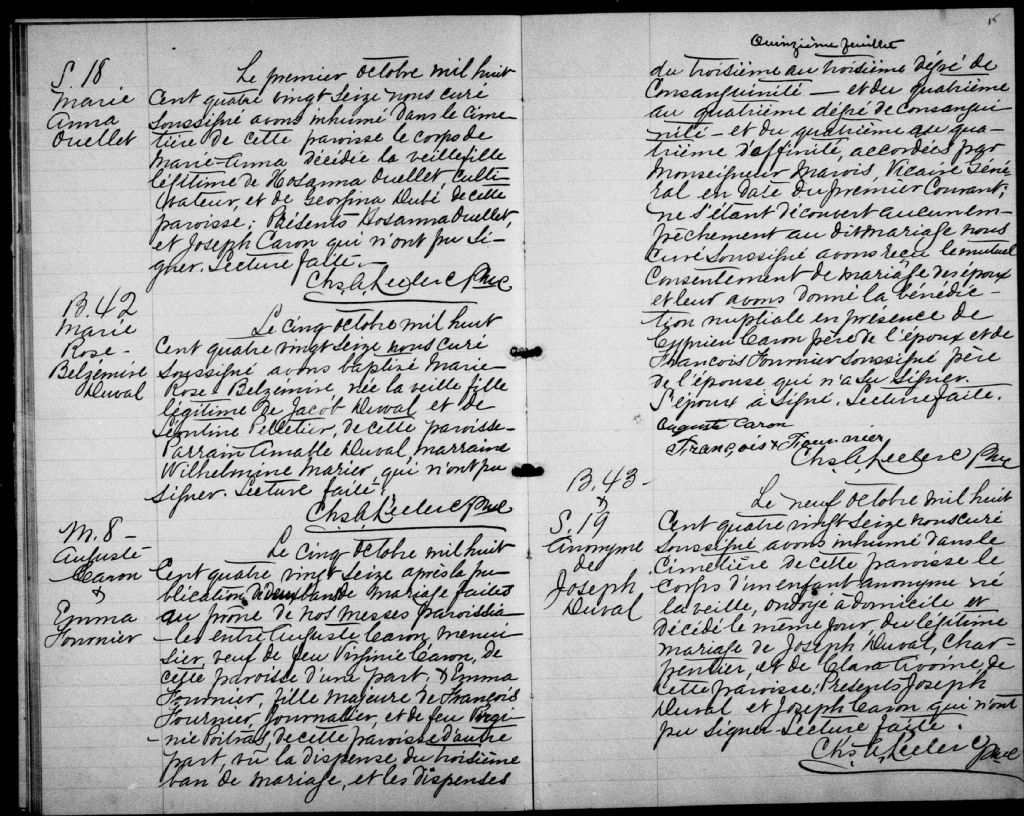 S. 18
Marie
Anna
Ouellet
Le premier octobre mil huit
Cent quatre vingt seize nous curé
soussigné avons inhumé dans le cime-
tière de cette paroisse le corps de
Marie-Anna décédée la veille fille
légitime de Hosanna Ouellet culti-
vateur, et de Georgina Dubé de cette
paroisse: Présents Hosanna Ouellet,
et Joseph Caron qui n'ont pu si-
gner. Lecture faite.
Chs. A. Leclerc Ptre
B. 42
Marie
Rose-
Belzemire
Duval
Le cinq octobre mil huit
Cent quatre vingt seize nous curé
soussigné avons baptisé Marie
Rose Belzémire, née la veille fille
légitime de Jacob Duval et de
Léontine Pelletier, de cette paroisse-
Parrain Amable Duval, marraine
Wilhelmine Marier, qui n'ont pu
signer. Lecture faite.
Chs. A. Leclerc Ptre
M. 8-
Auguste
Caron
&
Emma
Fournier
Le cinq octobre mil huit
Cent quatre vingt seize après la pu-
blication de deux bans de mariage faites
au prône de nos messes paroissia-
les entre Auguste Caron, menui-
sier, veuf de feu Virginie Caron, de
cette paroisse d'une part, & Emma
Fournier, fille majeure de François
Fournier, journalier, et de feu Virgi-
nie Poitras, de cette paroisse d'autre
part, vû la dispense du troisième
ban de mariage, et les dispenses
15
Quinzième feuillet
du troisième au troisième dégré de
Consanguinité - et du quatrième
au quatrième dégré de consangui-
nité - et du quatrième au qua-
trième d'affinité, accordées par
Monseigneur Marois, Vicaire Géné-
ral en date du premier Courant;
ne s'étant découvert aucun em-
pêchement au dit mariage nous
Curé soussigné avons reçu le mutuel
Consentement de mariage des époux
et leur avons donné la bénédic-
tion nuptiale en présence de
Cyprien Caron père de l'époux et de
François Fournier soussigné père
de l'épouse qui n'a su signer.
L'époux a signé. Lecture faite.
Auguste Caron
François x Fournier
Chs. A. Leclerc Ptre
B. 43-
&
S. 19
Anonyme
de
Joseph
Duval
Le neuf octobre mil huit
Cent quatre vingt seize nous curé
soussigné avons inhumé dans le
Cimetière de cette paroisse le
corps d'un enfant anonyme né
la veille, ondoyé à domicile et
décédé le même jour du légitime
mariage de Joseph Duval, Char-
pentier, et de Clara Ivoine, de
cette paroisse; Présents Joseph
Duval et Joseph Caron qui n'ont
pu signer. Lecture faite.
Chs. A. Leclerc Ptre